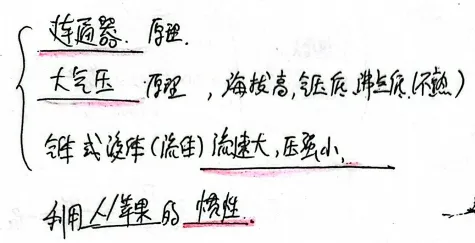 连通器. 原理.
大气压 原理, 海拔高, 气压低, 沸点低.(不熟)
气体或液体(流体)流速大, 压强小,
利用人/苹果的惯性.